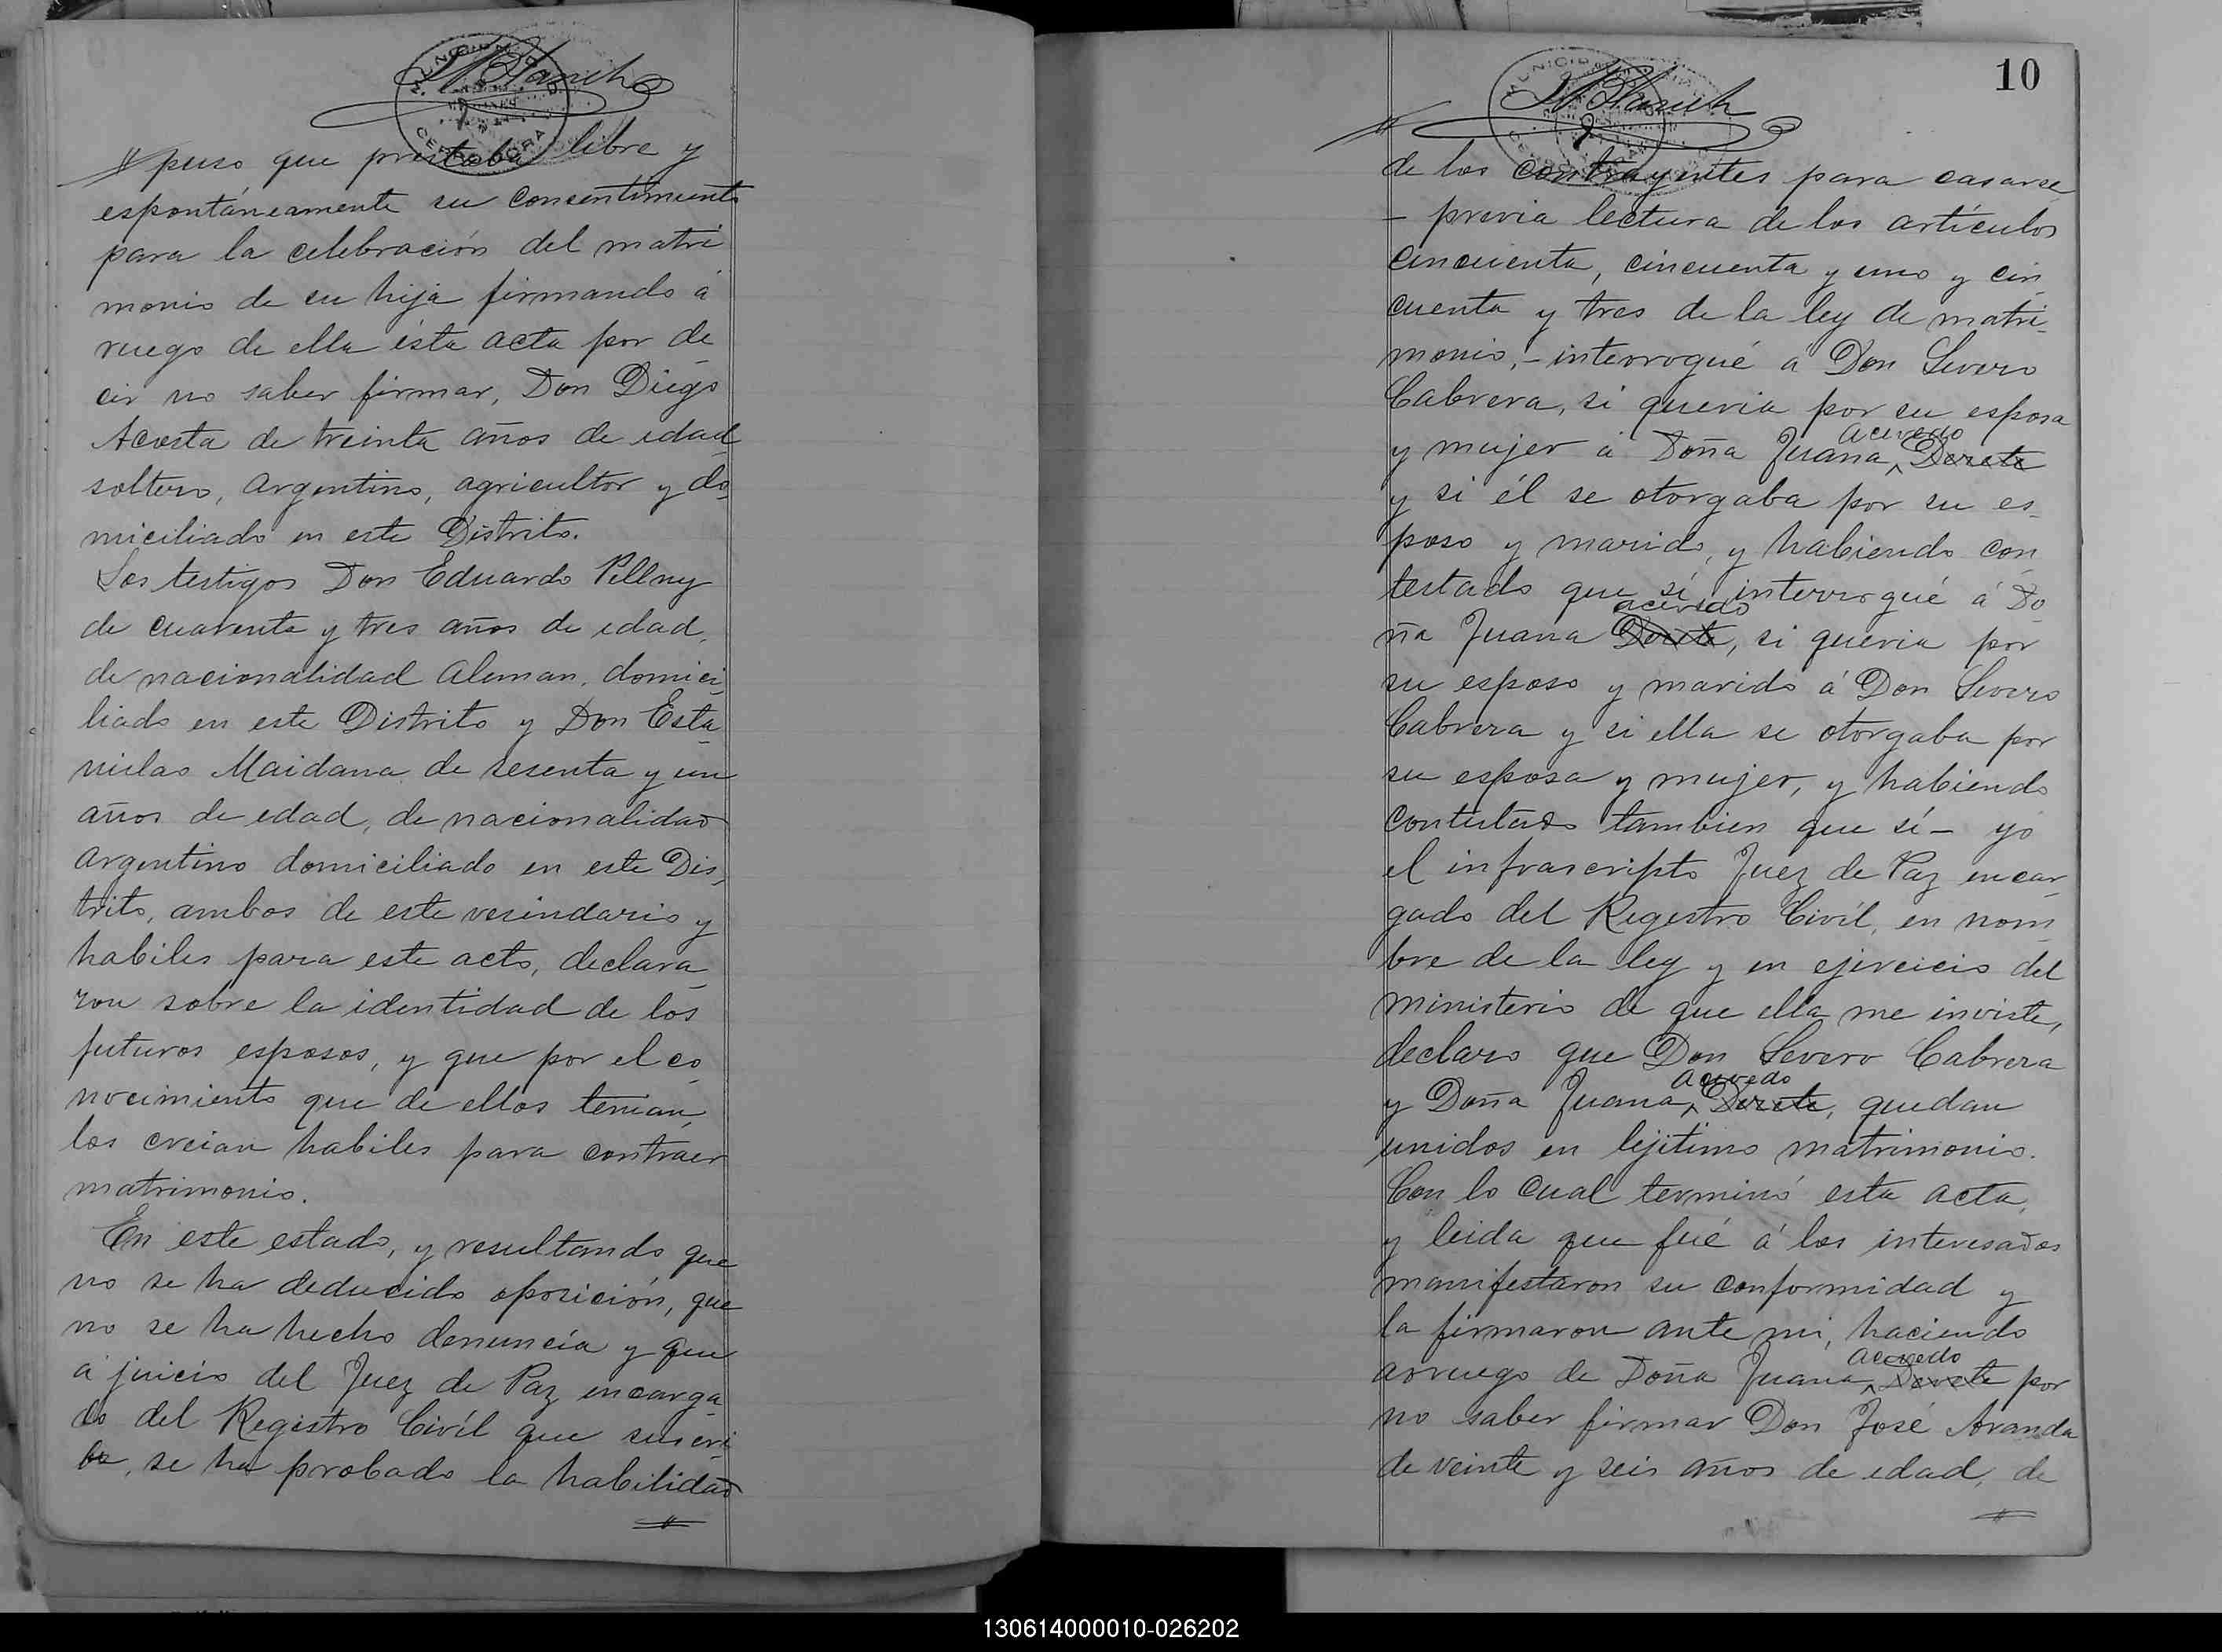 puso que prestaba libre y
espontáneamente su consentimiento
para la celebración del matri
monio de su hija firmando á
ruego de ella ésta acta por de
cir no saber firmar, Don Diego
Acosta de treinta años de edad
soltero, argentino, agricultor y do
miciliado en este Distrito.
Los testigos Don Eduardo Pellny
de cuarenta y tres años de edad,
de nacionalidad Aleman, domici
liado en este Distrito y Don Esta
nislao Maidana de sesenta y un
años de edad, de nacionalidad
argentino domiciliado en este Dis
trito, ambos de este vesindario y
habiles para este acto, declara
ron sobre la identidad de los
futuros esposos, y que por el co
nocimiento que de ellos tenian,
los creian habiles para contraer
matrimonio.
En este estado, y resultando que
no se ha deducido oposición, que
no se ha hecho denuncía y que
á juicio del Juez de Paz encarga
do del Registro Civíl que suscri
be, se ha probado la habilidad
10
de los contrayentes para casarse
– previa lectura de los artículos
cincuenta, cincuenta y uno y cin
cuenta y tres de la ley de matri-
monio, – interrogué á Don Severo
Cabrera, si queria por su esposa
y mujer á Doña Juana Acevedo Derete
y si él se otorgaba por su es
poso y marido, y habiendo con
testado que sí, interrogué á Do
ña Juana Acevedo Derete, si queria por
su esposo y marido á Don Severo
Cabrera y si ella se otorgaba por
su esposa y mujer, y habiendo
contestado tambien que sí – yo
el infrascripto Juez de Paz encar
gado del Registro Civíl, en nom
bre de la ley y en ejercicio del
ministerio de que ella me inviste,
declaro que Don Severo Cabrera
y Doña Juana Acevedo Derete, quedan
unidos en lejitimo matrimonio.
Con lo cual terminó esta acta,
y leida que fué á los interesados
manifestaron su conformidad y
la firmaron ante mi, haciendo
arruego de Doña Juana Acevedo Derete por
no saber firmar Don José Aranda
de veinte y seis años de edad, de
130614000010-026202